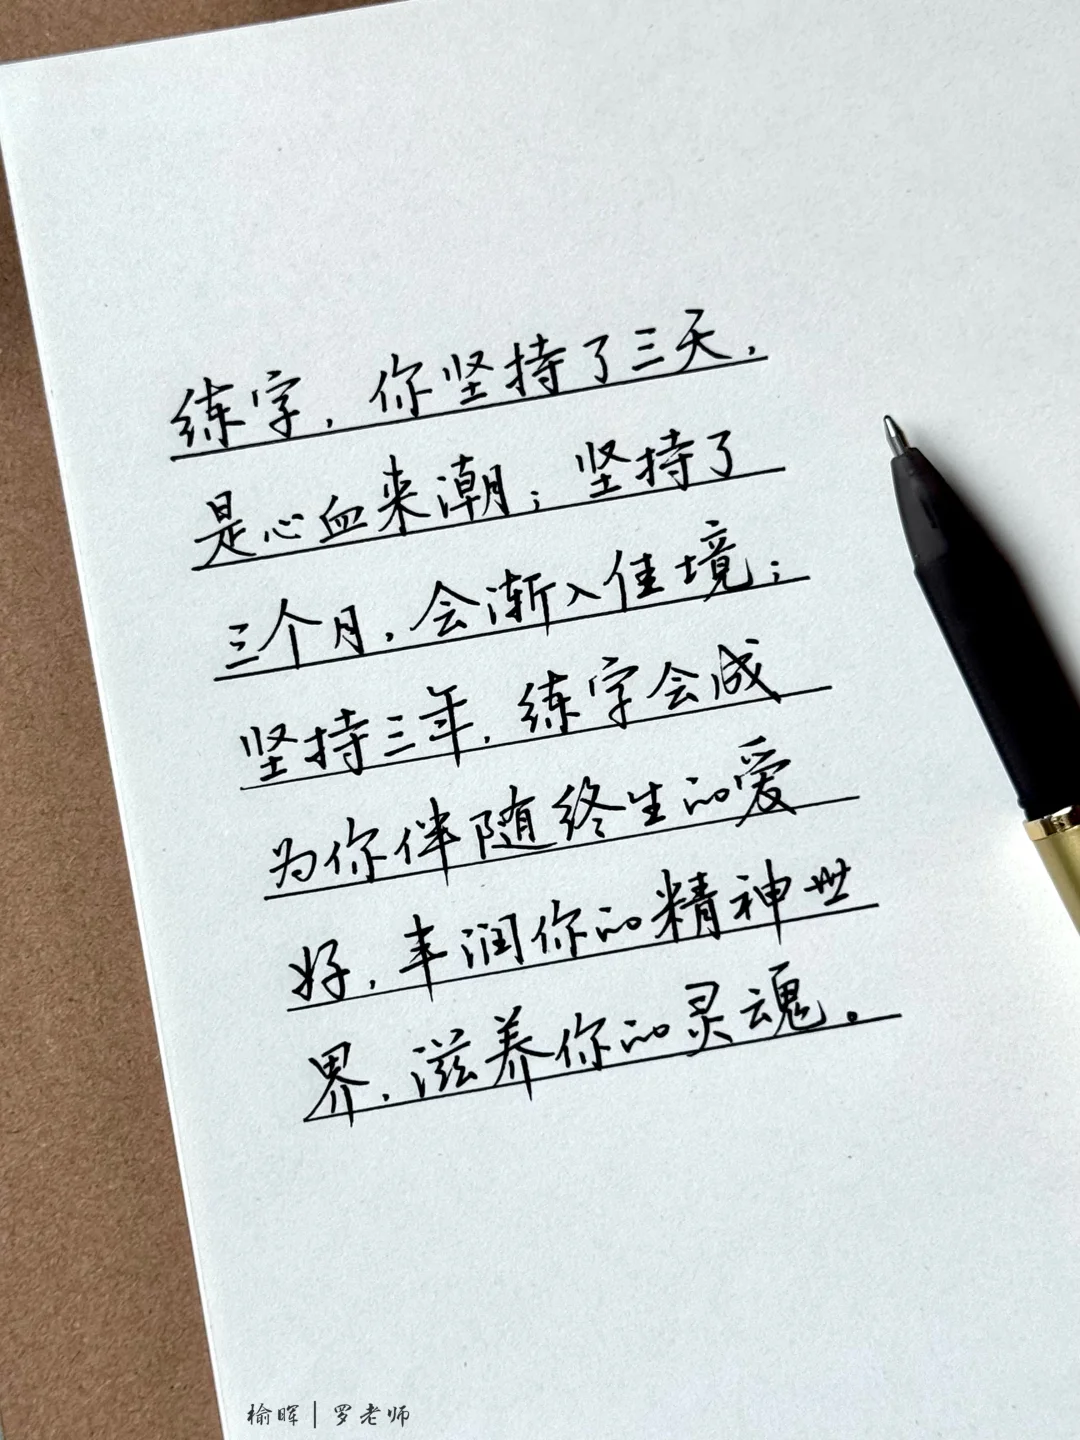 练字，你坚持了三天，
是心血来潮；坚持了
三个月，会渐入佳境；
坚持三年，练字会成
为你伴随终生的爱
好，丰润你的精神世
界，滋养你的灵魂。
榆晖 | 罗老师